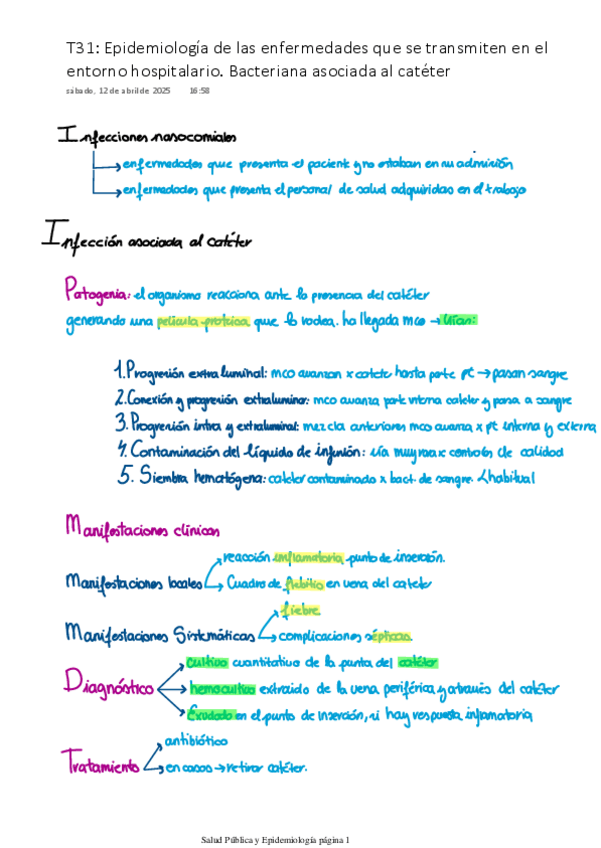 T31: Epidemiología de las enfermedades que se transmiten en el
entorno hospitalario. Bacteriana asociada al catéter
sábado, 12 de abril de 2025 16:58
Infecciones nasocomiales
enfermedades que presenta el pacient y no estaban en su admisión
enfermedades que presenta el personal de salud adquiridas en el trabajo
Infección asociada al catéter
Patogenia: el organismo reacciona ante la presencia del catéter
generando una película proteica que lo rodea. ha llegada mco → Vías:
1. Progresión extraluminal: mco avanzan x catete hasta parte pt → pasan sangre
2. Conexión y progresión extraluminar: mco avanza parte interna cateter y pasa a sangre
3. Progresión intra y extraluminal: mezcla anteriores mco avanza x pt interna y externa
4. Contaminación del líquido de infusión: vía muy rara x controles de calidad
5. Siembra hematógena: cateter contaminado x bact. de sangre. habitual
Manifestaciones clínicas
reacción inflamatoria punto de inserción.
Manifestaciones locales
Cuadro de flebitis en vena del cateter
fiebre
Manifestaciones Sistemáticas
complicaciones sépticas
cultivo cuantitativo de la punta del catéter
Diagnóstico
hemocultivo extraido de la vena periférica y através del catéter
Exudado en el punto de inserción, si hay respuesta inflamatoria
antibiótico
Tratamiento
en casos → retirar catéter.
Salud Pública y Epidemiología página 1